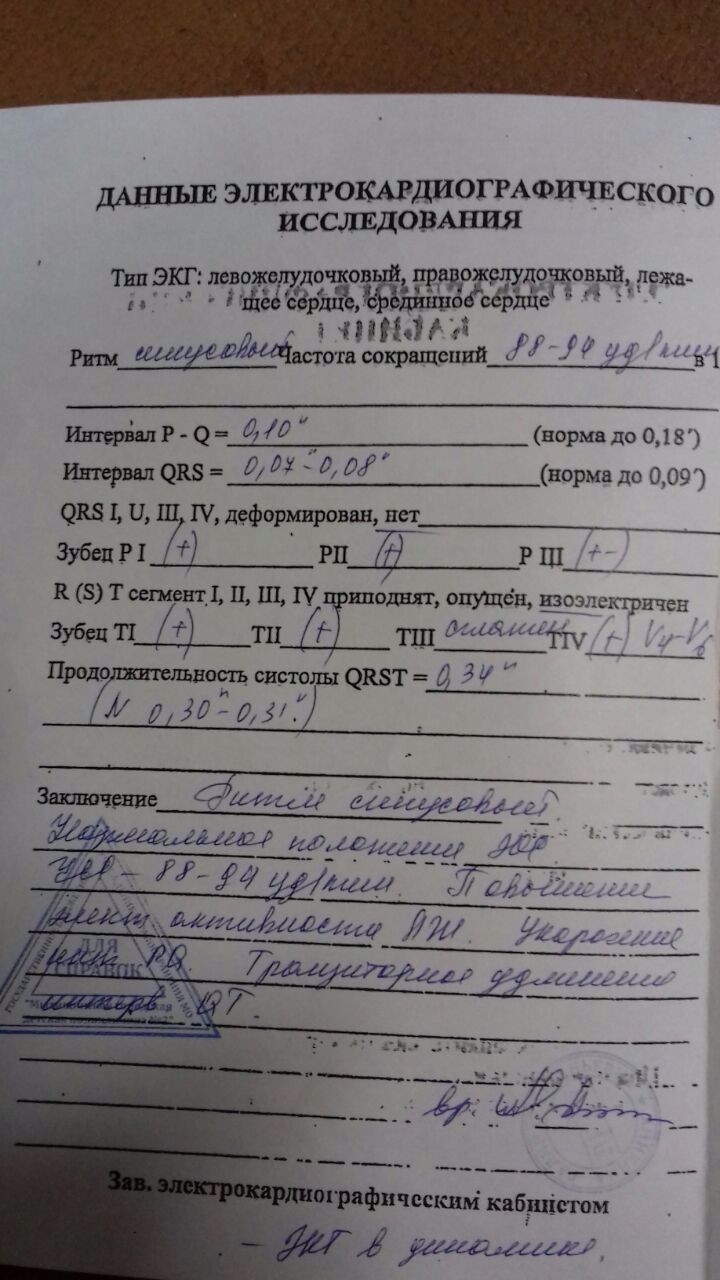 ДАННЫЕ ЭЛЕКТРОКАРДИОГРАФИЧЕСКОГО
ИССЛЕДОВАНИЯ
Тип ЭКГ: левожелудочковый, правожелудочковый, лежа-
щее сердце, срединное сердце
Ритм синусовый Частота сокращений 88-94 уд/мин в 1
Интервал P - Q = 0,10" (норма до 0,18")
Интервал QRS = 0,07"-0,08" (норма до 0,09")
QRS I, U, III, IV, деформирован, нет
Зубец P I (+) PII (+) P III (+-)
R (S) T сегмент I, II, III, IV приподнят, опущен, изоэлектричен
Зубец TI (+) TII (+) TIII сглажен TIV (+) V4-V6
Продолжительность систолы QRST = 0,34"
(N 0,30"-0,31")
Заключение Ритм синусовый.
Нормальное положение ЭОС.
ЧСС - 88-94 уд/мин. Повышение
элект активности ЛЖ. Укорочение
инт PQ. Транзиторное удлинение
интерв QT.
ДЛЯ
СПРАВОК
вр.
Зав. электрокардиографическим кабинетом
- ЭКГ в динамике.